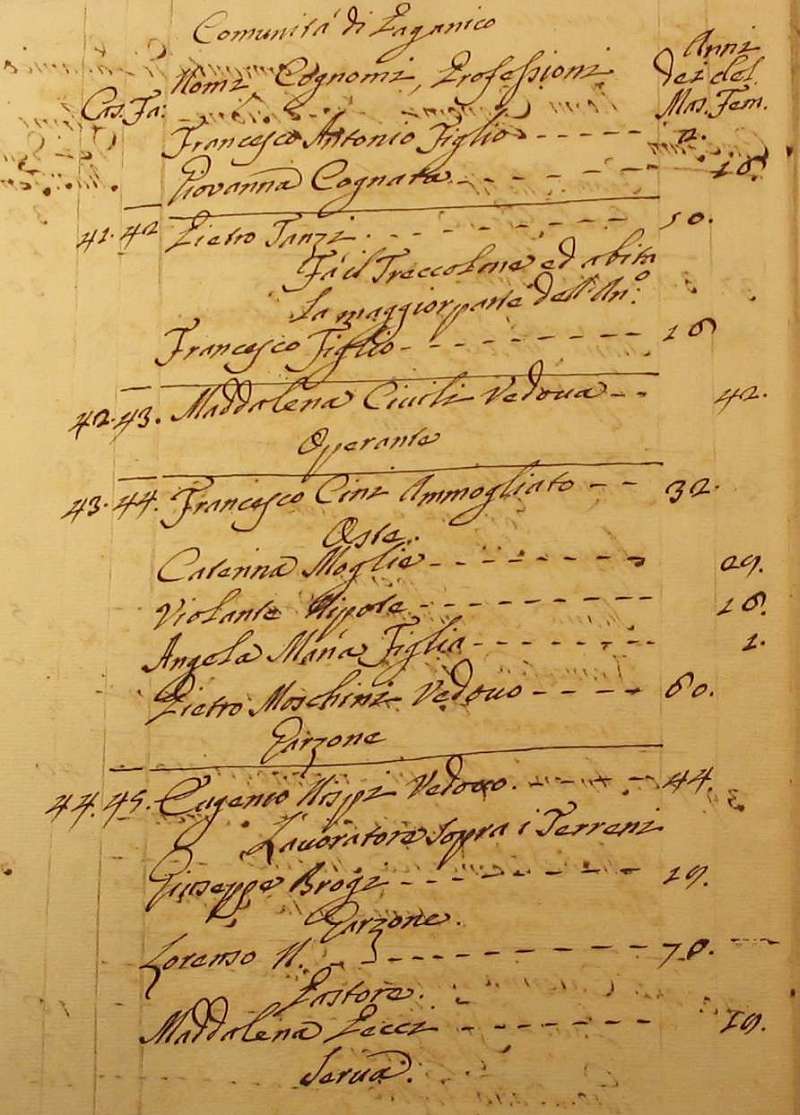 Comunità di Paganico
Nomi, Cognomi, Professioni
Anni
dei del
Cas. Fa: Mas. Fem.
Francesco Antonio Figlio ------ 2.
Giovanna Cognata -------- 18.
41. 42 Pietro Tanzi -------- 50.
Fà il Treccolone ed abita
la maggior parte dell'An:o
Francesco Figlio -------- 18
42. 43. Maddalena Civili Vedova -- 42.
Operante
43. 44. Francesco Cini Ammogliato -- 32.
Oste.
Caterina Moglie -------- 29.
Violante Nipote -------- 18.
Angela Maria Figlia ------- 1.
Pietro Moschini Vedovo ---- 60.
Garzone
44. 45. Eugenio Vedovo. ----- 44.
Lavoratore sopra i Terreni
Giuseppe Brogi ------- 19.
Garzone.
Lorenso N. -------- 70.
Pastore.
Maddalena Pecci ------ 19.
Serva.